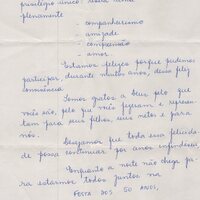 privilégio único:
plenamente
- companheirismo
- amizade
- compreensão
- amor.
Estamos felizes porque pudemos
participar, durante muitos anos, dessa feliz
convivência.
Somos gratos a Deus pelo que
vocês são, pelo que vocês fizeram e represen
tam para seus filhos, seus netos e para
nós.
Desejamos que toda essa felicida
de possa continuar por anos infindáveis.
Enquanto a noite não chega, pa
ra estarmos todos juntos na
FESTA DOS 50 ANOS,